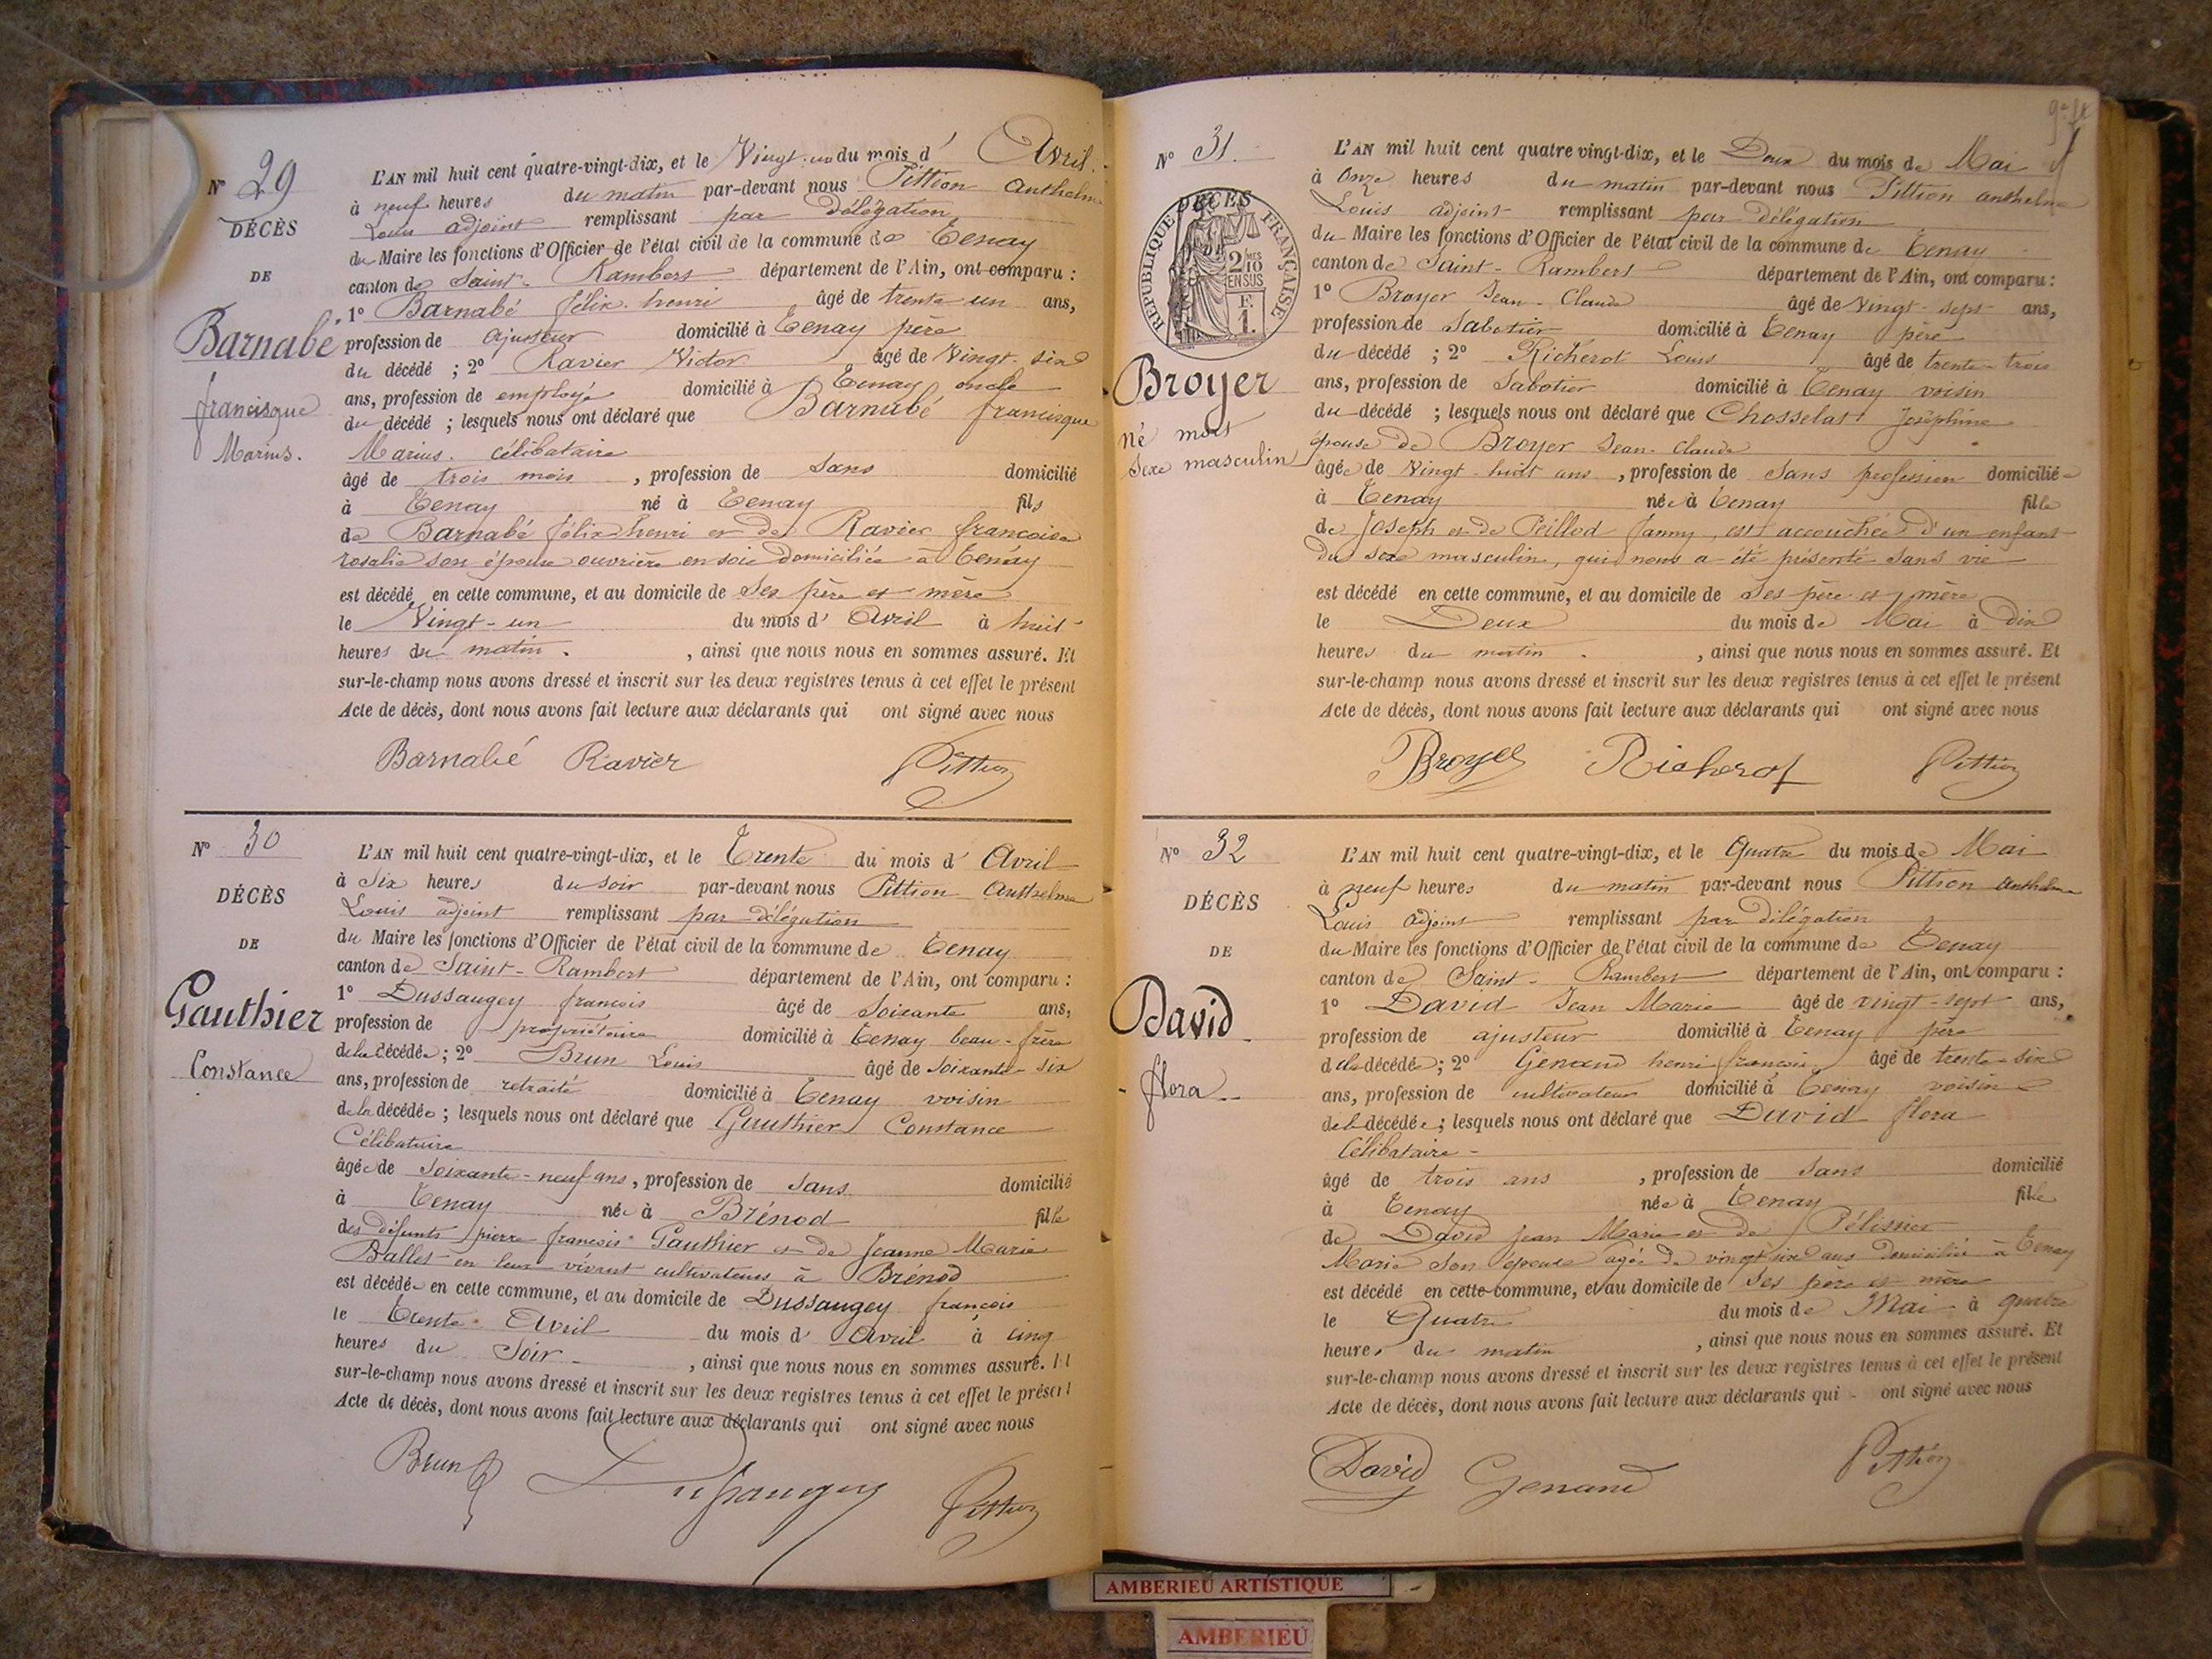 N° 29
DÉCÈS
DE
Barnabé
francisque
Marius.
L'AN mil huit cent quatre-vingt-dix, et le Vingt-un du mois d' Avril.
à neuf heures du matin par-devant nous Pittion Anthelme
Louis adjoint remplissant par délégation
du Maire les fonctions d'Officier de l'état civil de la commune de Tenay
canton de Saint-Rambert département de l'Ain, ont comparu :
1° Barnabé félix henri âgé de trente un ans,
profession de ajusteur domicilié à Tenay père
du décédé ; 2° Ravier Victor âgé de Vingt-six
ans, profession de employé domicilié à Tenay oncle
du décédé ; lesquels nous ont déclaré que Barnabé francisque
Marius. célibataire
âgé de trois mois , profession de Sans domicilié
à Tenay né à Tenay fils
de Barnabé félix henri et de Ravier francoise
rosalie son épouse ouvrière en soie domiciliée à Tenay
est décédé en cette commune, et au domicile de Ses père et mère
le Vingt-un du mois d' Avril à huit
heures du matin. , ainsi que nous nous en sommes assuré. Et
sur-le-champ nous avons dressé et inscrit sur les deux registres tenus à cet effet le présent
Acte de décès, dont nous avons fait lecture aux déclarants qui ont signé avec nous
Barnabé Ravier Pittion
N° 30
DÉCÈS
DE
Gauthier
Constance
L'AN mil huit cent quatre-vingt-dix, et le Trente du mois d' Avril
à Six heures du soir par-devant nous Pittion Anthelme
Louis adjoint remplissant par délégation
du Maire les fonctions d'Officier de l'état civil de la commune de Tenay
canton de Saint-Rambert département de l'Ain, ont comparu :
1° Dussaugey francois âgé de Soixante ans,
profession de propriétaire domicilié à Tenay beau-frère
de la décédée ; 2° Brun Louis âgé de Soixante-six
ans, profession de retraité domicilié à Tenay voisin
de la décédée ; lesquels nous ont déclaré que Gauthier Constance
Célibataire
âgée de Soixante-neuf ans, profession de Sans domicilié
à Tenay née à Brénod fille
des défunts pierre francois Gauthier et de Jeanne Marie
Ballet en leur vivant cultivateurs à Brénod
est décédée en cette commune, et au domicile de Dussaugey françois
le Trente Avril du mois d' Avril à cinq
heures du Soir , ainsi que nous nous en sommes assuré. Et
sur-le-champ nous avons dressé et inscrit sur les deux registres tenus à cet effet le présent
Acte de décès, dont nous avons fait lecture aux déclarants qui ont signé avec nous
Brun Dussaugey Pittion
N° 31.
DÉCÈS
RÉPUBLIQUE FRANÇAISE
2 MES
10
EN SUS
F.
1.
Broyer
né mort
Sexe masculin
L'AN mil huit cent quatre vingt-dix, et le Deux du mois de Mai
à Onze heures du matin par-devant nous Pittion anthelme
Louis adjoint remplissant par délégation
du Maire les fonctions d'Officier de l'état civil de la commune de Tenay
canton de Saint-Rambert département de l'Ain, ont comparu :
1° Broyer Jean-Claude âgé de Vingt-sept ans,
profession de Sabotier domicilié à Tenay père
du décédé ; 2° Richerot Louis âgé de trente-trois
ans, profession de Sabotier domicilié à Tenay voisin
du décédé ; lesquels nous ont déclaré que Chosselat Joséphine
épouse de Broyer Jean-Claude
âgée de Vingt-huit ans , profession de Sans profession domiciliée
à Tenay née à Tenay fille
de Joseph et de Peillod fanny, est accouchée d'un enfant
du sexe masculin, qui nous a été présenté sans vie
est décédé en cette commune, et au domicile de Ses père et mère
le Deux du mois de Mai à Dix
heures du matin . , ainsi que nous nous en sommes assuré. Et
sur-le-champ nous avons dressé et inscrit sur les deux registres tenus à cet effet le présent
Acte de décès, dont nous avons fait lecture aux déclarants qui ont signé avec nous
Broyer Richerot Pittion
N° 32
DÉCÈS
DE
David
flora
L'AN mil huit cent quatre-vingt-dix, et le Quatre du mois de Mai
à neuf heures du matin par-devant nous Pittion anthelme
Louis adjoint remplissant par délégation
du Maire les fonctions d'Officier de l'état civil de la commune de Tenay
canton de Saint-Rambert département de l'Ain, ont comparu :
1° David Jean Marie âgé de vingt-sept ans,
profession de ajusteur domicilié à Tenay père
de la décédée ; 2° Genand henri francois âgé de trente-six
ans, profession de cultivateur domicilié à Tenay voisin
de la décédée ; lesquels nous ont déclaré que David flora
Célibataire
âgé de trois ans , profession de Sans domicilié
à Tenay née à Tenay fille
de David Jean Marie et de Pélissier
Marie son épouse agée de vingt six ans domiciliée à Tenay
est décédé en cette commune, et au domicile de Ses père et mère
le Quatre du mois de Mai à quatre
heures du matin , ainsi que nous nous en sommes assuré. Et
sur-le-champ nous avons dressé et inscrit sur les deux registres tenus à cet effet le présent
Acte de décès, dont nous avons fait lecture aux déclarants qui ont signé avec nous
David Genand Pittion
AMBERIEU ARTISTIQUE
AMBERIEU